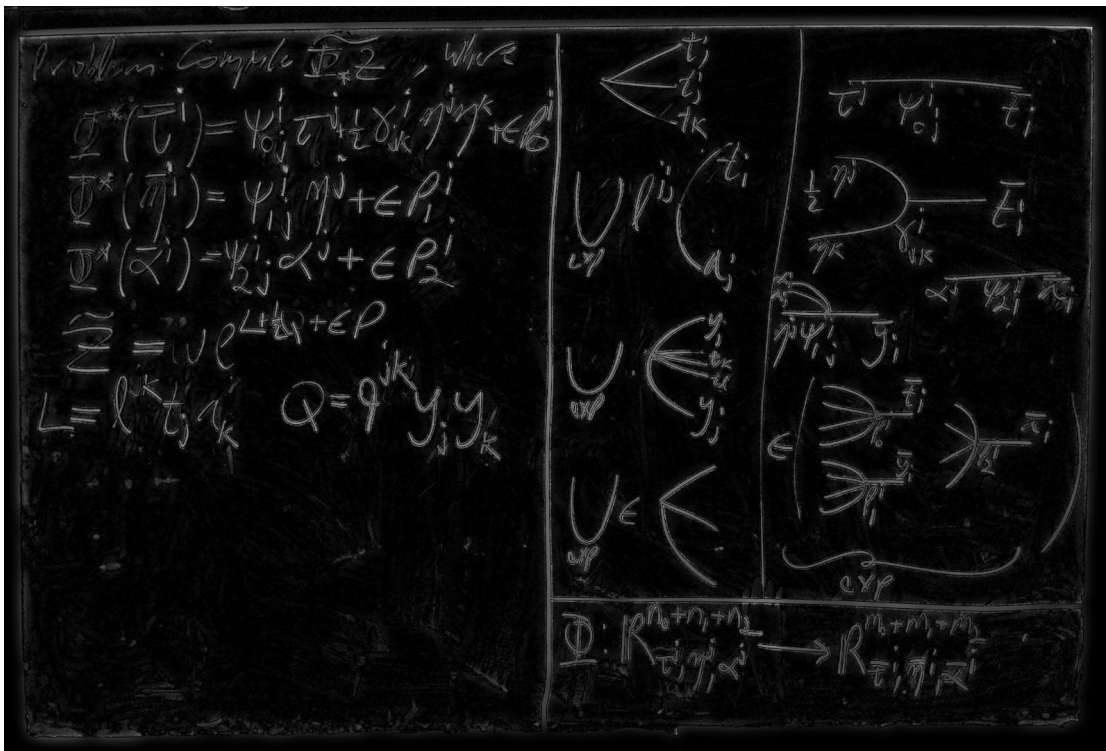 Problem: Compute Φ̃_* Z, where
Φ^*(τ̄^i) = ψ_{0j}^i τ^j + ½ γ_{jk}^i η^j η^k + ε P_0^i
Φ^*(η̄^i) = ψ_{1j}^i η^j + ε P_1^i
Φ^*(ᾱ^i) = ψ_{2j}^i α^j + ε P_2^i
= w e^{L + ½Q + εP}
L = l^{jk} t_j x_k Q = q^{jk} y_j y_k
t_i
t_j
t_k
∪ l^{ij} t_i
exp
a_j
y_i
∪
exp
y_j
∪ ε
exp
τ^j ψ_{0j}^i t̄_i
½ η^j
t̄_i
η^k γ_{jk}^i
α^j ψ_{2j}^i
η^j ψ_{1j}^i ȳ_i
ε
t̄_i
P_0^i
P_2^i
ȳ_i
P_1^i
exp
Φ: R^{n_0+n_1+n_2}_{τ^j, η^j, α^j} → R^{m_0+m_1+m_2}_{τ̄^i, η̄^i, ᾱ^i}